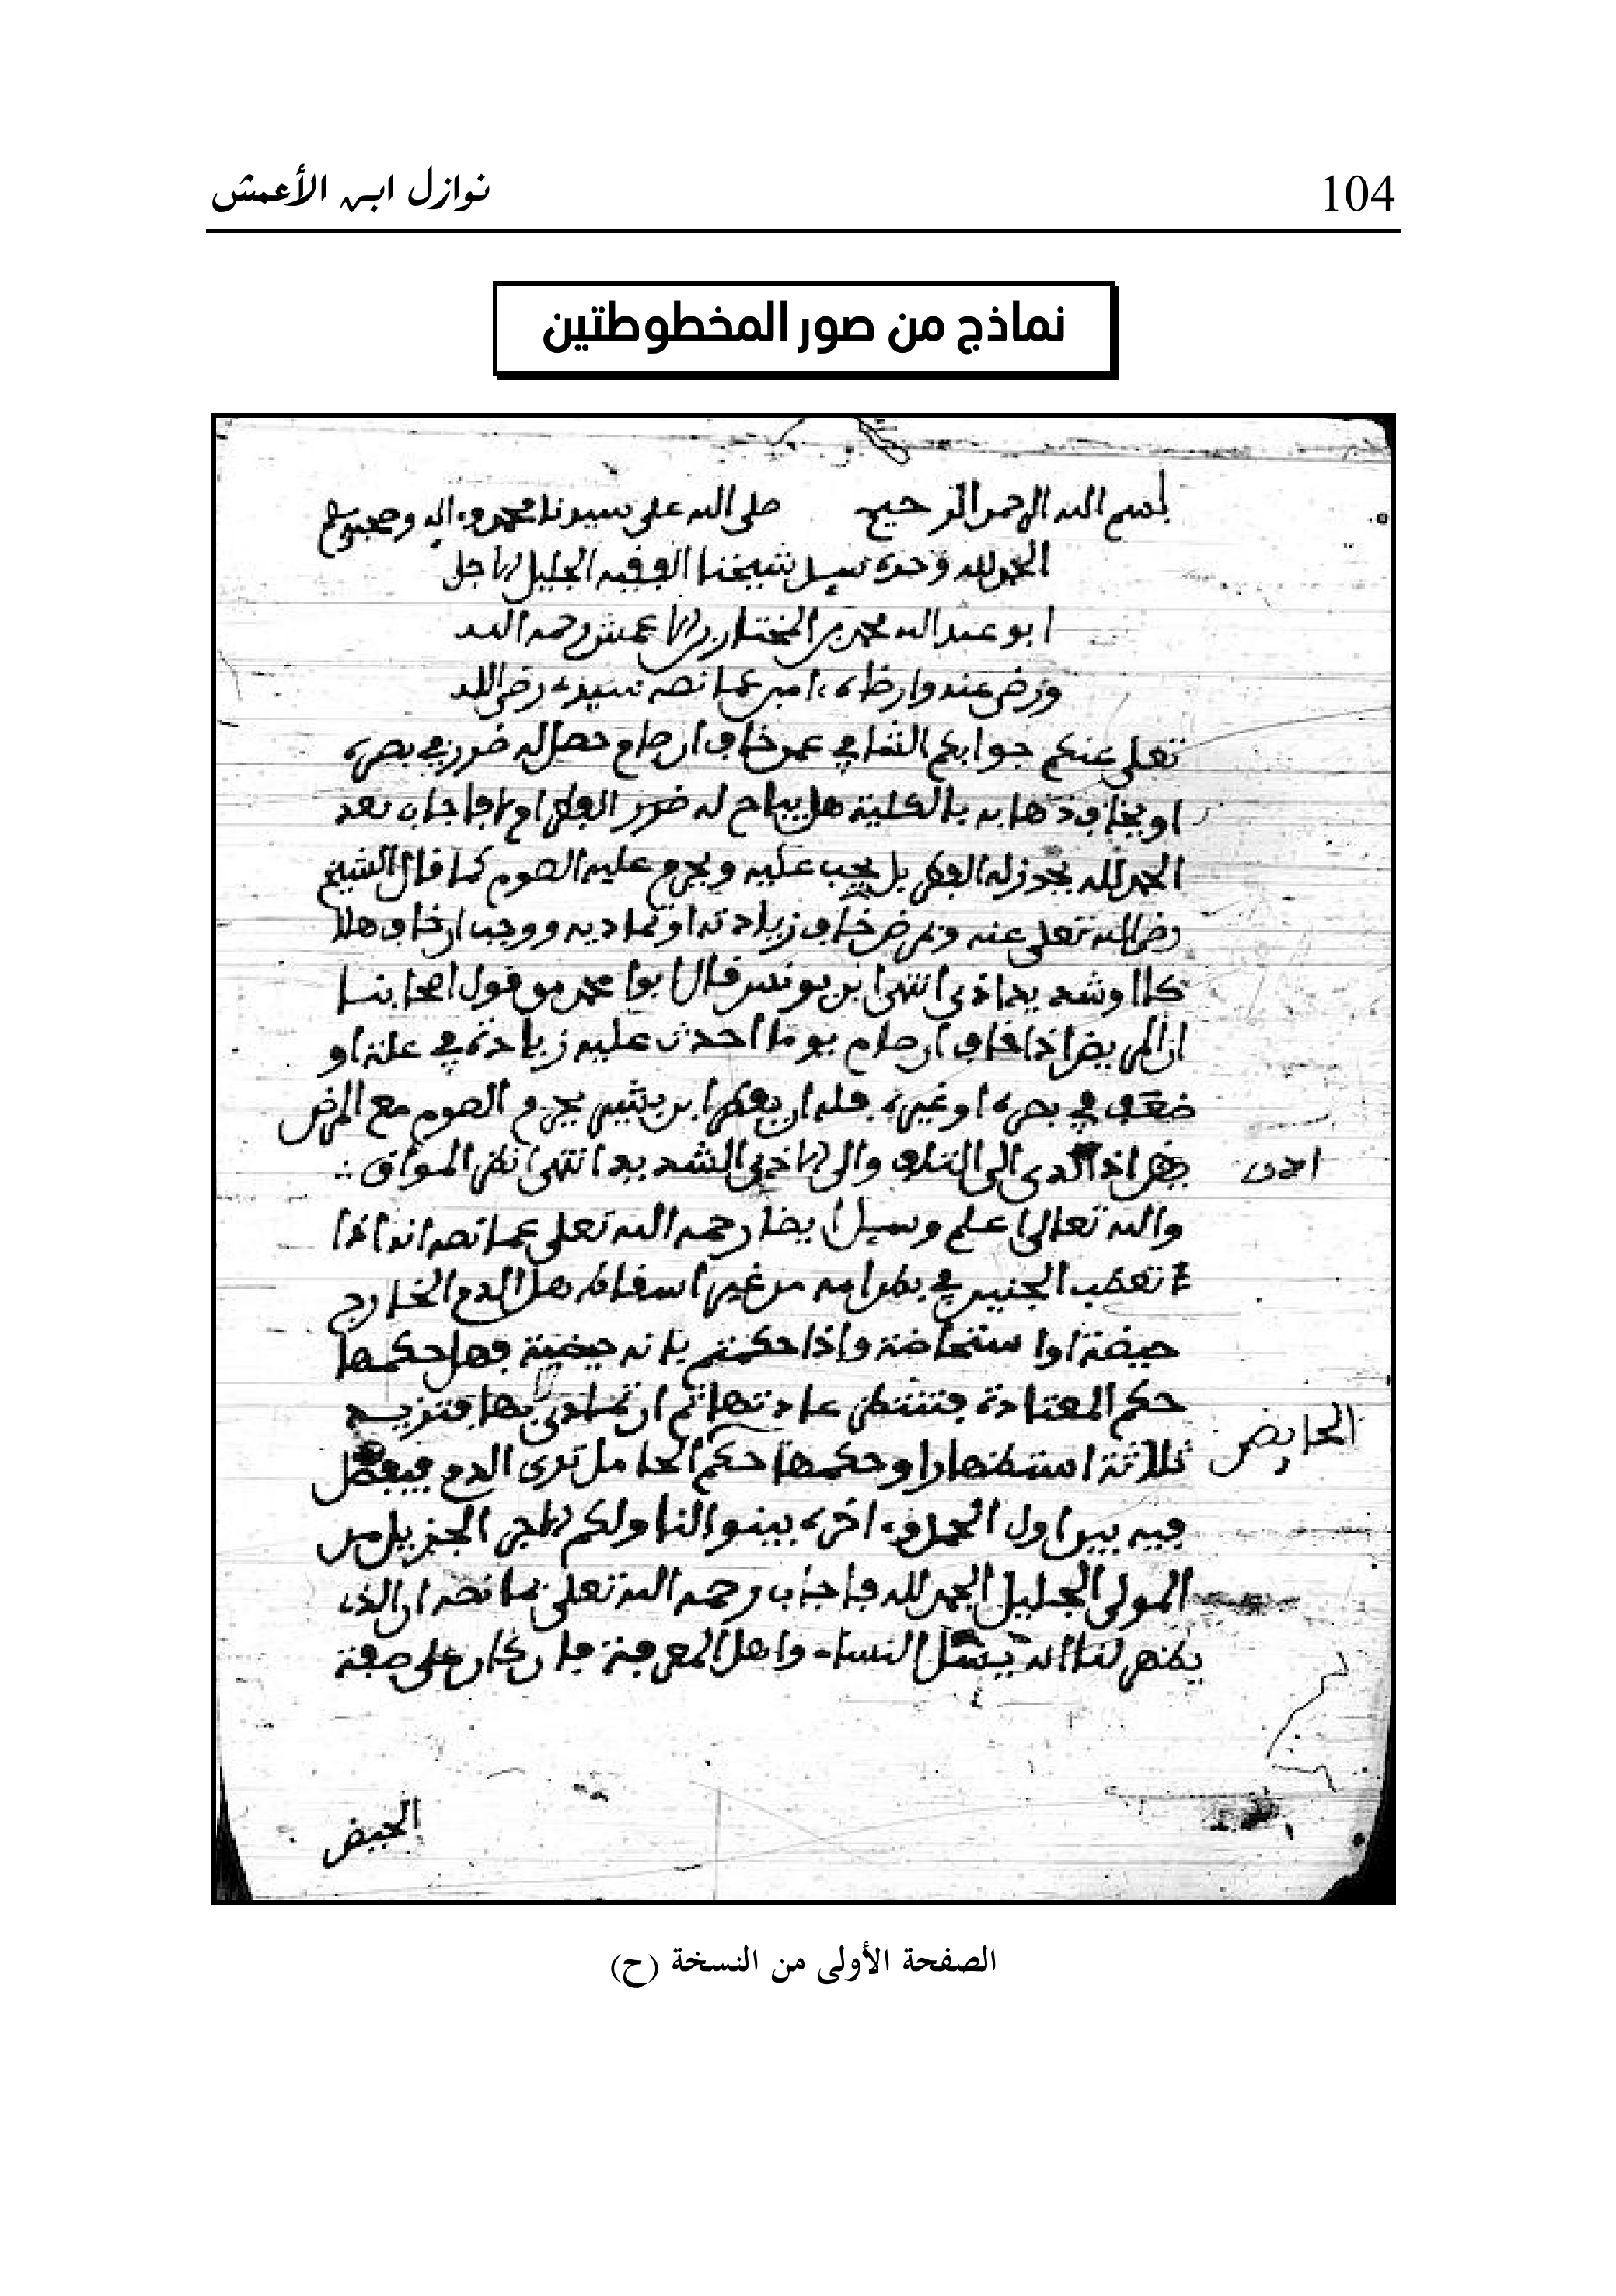 104
نوازل ابن الأعمش
نماذج من صور المخطوطتين
بسم الله الرحمن الرحيم صلى الله على سيدنا محمد وءاله وصحبه وسلم
الحمد لله وحده سيل شيخنا الفقيه الجليل الاجل
ابو عبد الله محمد بن المختار بن الاعمش رحمه الله
ورضي عنه وارضاه ءامين عما نصه سيدي رضي الله
تعلى عنكم جوابكم الشافي عمن خاف ان صام حصل له ضرر في بصره
او يخاف ذهابه بالكلية هل يباح له الفطر ام لا فاجاب بعد
الحمد لله يجوز له الفطر بل يجب عليه ويحرم عليه الصوم كما قال الشيخ
رضي الله تعلى عنه وبمرض خاف زيادته او تماديه ووجب ان خاف هلاكا
او شديد اذى انتهى ابن يونس قال ابوا محمد من قول اصحابنا
ان المريض اذا خاف ان صام يوما احدث عليه زيادة في علته او
ضعف في بصره او غيره فله ان يفطر ابن بشير يحرم الصوم مع المرض
اذا ادى الى التلف والى الاذى الشديد انتهى نظر المواق
والله تعالى اعلم وسيل ايضا رحمه الله تعلى عما نصه اذا
الجنين في بطن امه من غير اسقاط هل الدم الخارج
حيضة او استحاضة واذا حكمتم بانه حيضة فهل حكمها
حكم المعتادة فتنتظر عادتها ثم ان تمادى بها فتزيد
الحايض
ثلاثة استظهارا او حكمها حكم الحامل ترى الدم فيفصل
فيه بين اول الحمل وءاخره بينوا لنا ولكم الاجر الجزيل من
المولى الجليل الحمد لله فاجاب رحمه الله تعلى بما نصه ان الذي
يظهر لنا انه يسئل النساء واهل المعرفة فان كان على صفة
الحيض
الصفحة الأولى من النسخة (ح)